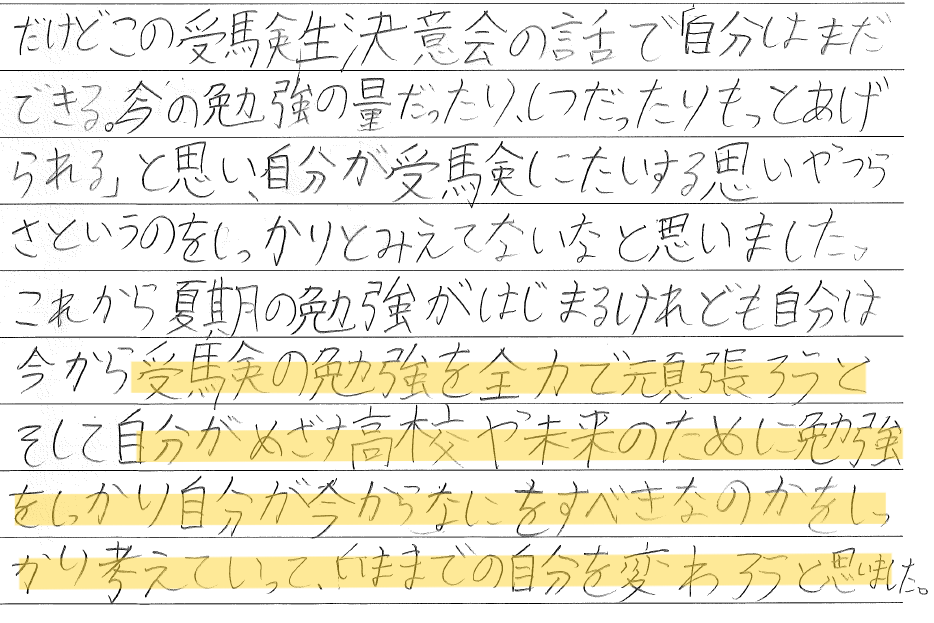 だけどこの受馬験生決意会の話で「自分はまだ
できる。今の勉強の量だったり、しつだったりもっとあげ
られる」と思い、自分が受馬験にたいする思いやつら
さというのをしっかりとみえてないなと思いました。
これから夏期の勉強がはじまるけれども自分は
今から受馬験の勉強を全力で頑張ろうと
そして自分がめざす高校や未来のために勉強
をしっかり自分が今からなにをすべきなのかをしっ
かり考えていって、いままでの自分を変わろうと思いました。